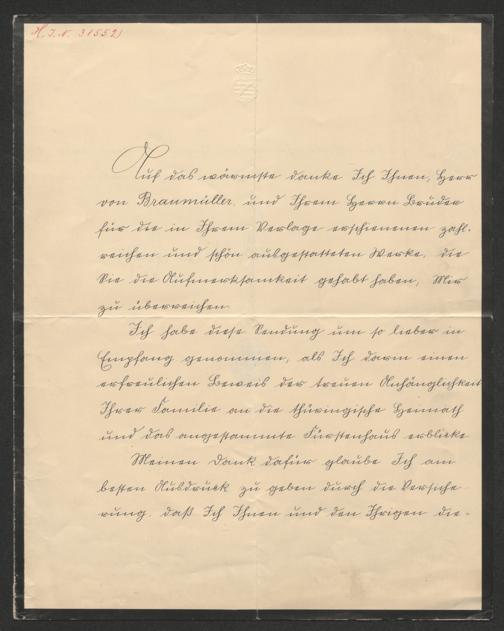 H.I.N. 31552
Auf das wärmste danke Ich Ihnen, Herr
von Braumüller, und Ihrem Herrn Bruder
für die in Ihrem Verlage erschienenen zahl-
reichen und schön ausgestatteten Werke, die
Sie die Aufmerksamkeit gehabt haben, Mir
zu überreichen.
Ich habe diese Sendung um so lieber in
Empfang genommen, als Ich darin einen
erfreulichen Beweis der treuen Anhänglichkeit
Ihrer Familie an die thüringische Heimath
und das angestammte Fürstenhaus erblicke
Meinen Dank dafür glaube Ich am
besten Ausdruck zu geben durch die Versiche-
rung, daß Ich Ihnen und den Ihrigen die-